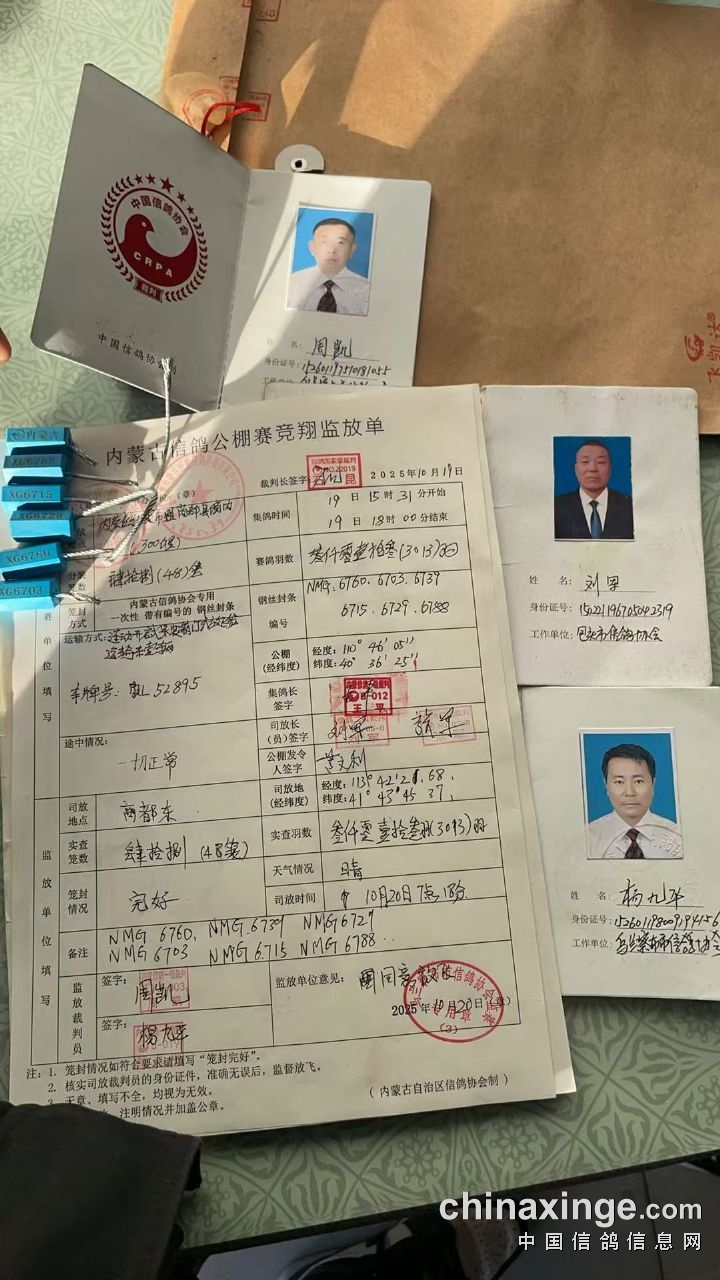 中国信鸽协会
CRPA
裁判
中国信鸽协会制
姓 名: 周凯
身份证号:
内蒙古
XG6788
XG6715
XG6729
XG6760
XG6703
内蒙古信鸽公棚赛竞翔监放单
裁判长签字: 2025年10月19日
(章)
集鸽时间
19日15时31分开始
19日18时00分结束
分装笼数
肆拾捌(48)笼
赛鸽羽数
叁仟零壹拾叁(3013)羽
笼封方式
内蒙古信鸽协会专用
一次性 带有编号的 钢丝封条
钢丝封条编号
NMG.6760.6703.6739
6715.6729.6788
赛单位填写
运输方式:
车牌号: 52895
公棚(经纬度)
经度:110°46′05″
纬度:40°36′25″
集鸽长签字
王平
途中情况:
一切正常
司放长(员)签字
刘军
公棚发令人签字
监放单位填写
司放地点
商都东
司放地(经纬度)
经度:113°42′21.68.
纬度:41°43′45 37.
实查笼数
肆拾捌(48笼)
实查羽数
叁仟零壹拾叁(3013)羽
笼封情况
完好
天气情况
晴
司放时间
10月20日7点18分
备注
NMG 6760. NMG.6739 NMG6729
NMG 6703. NMG 6.715 NMG 6788..
监放裁判员
签字: 周凯
签字: 杨九平
监放单位意见:
同意放飞
2025年10月20日(章)
(3)
注:1. 笼封情况如符合要求请填写“笼封完好”。
2. 核实司放裁判员的身份证件,准确无误后,监督放飞。
3. 无章、填写不全,均视为无效。
注明情况并加盖公章。
(内蒙古自治区信鸽协会制)
姓 名: 刘军
身份证号: 15221196705042319
工作单位: 包头市信鸽协会
姓 名: 杨九平
身份证号:
工作单位: 乌兰察布市信鸽协会
chinaxinge.com
中国信鸽信息网